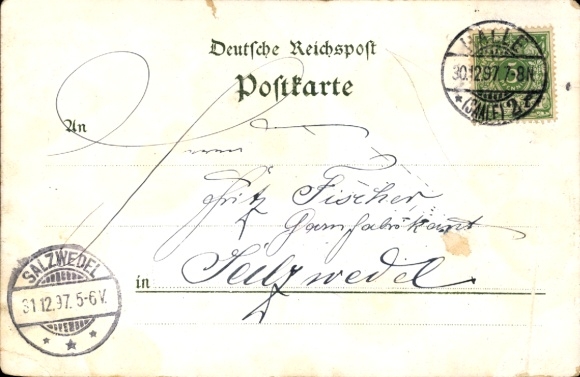 Deutsche Reichspost
Postkarte
HALLE
30.12.97. 7-8N
*(SAALE) 2 z
An
Herrn
Fritz Fischer
Garnfabrikant
in Salzwedel
SALZWEDEL
31.12.97. 5-6V.